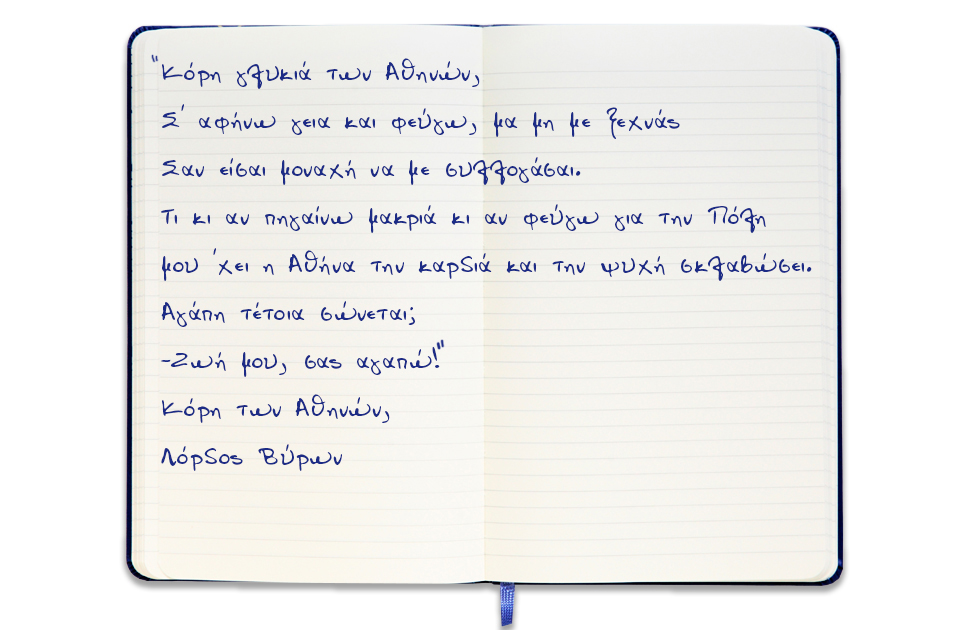 "Κόρη γλυκιά των Αθηνών,
Σ' αφήνω γεια και φεύγω, μα μη με ξεχνάς
Σαν είσαι μοναχή να με συλλογάσαι.
Τι κι αν πηγαίνω μακριά κι αν φεύγω για την Πόλη
μου 'χει η Αθήνα την καρδιά και την ψυχή σκλαβώσει.
Αγάπη τέτοια σώνεται;
-Ζωή μου, σας αγαπώ!"
Κόρη των Αθηνών,
Λόρδος Βύρων